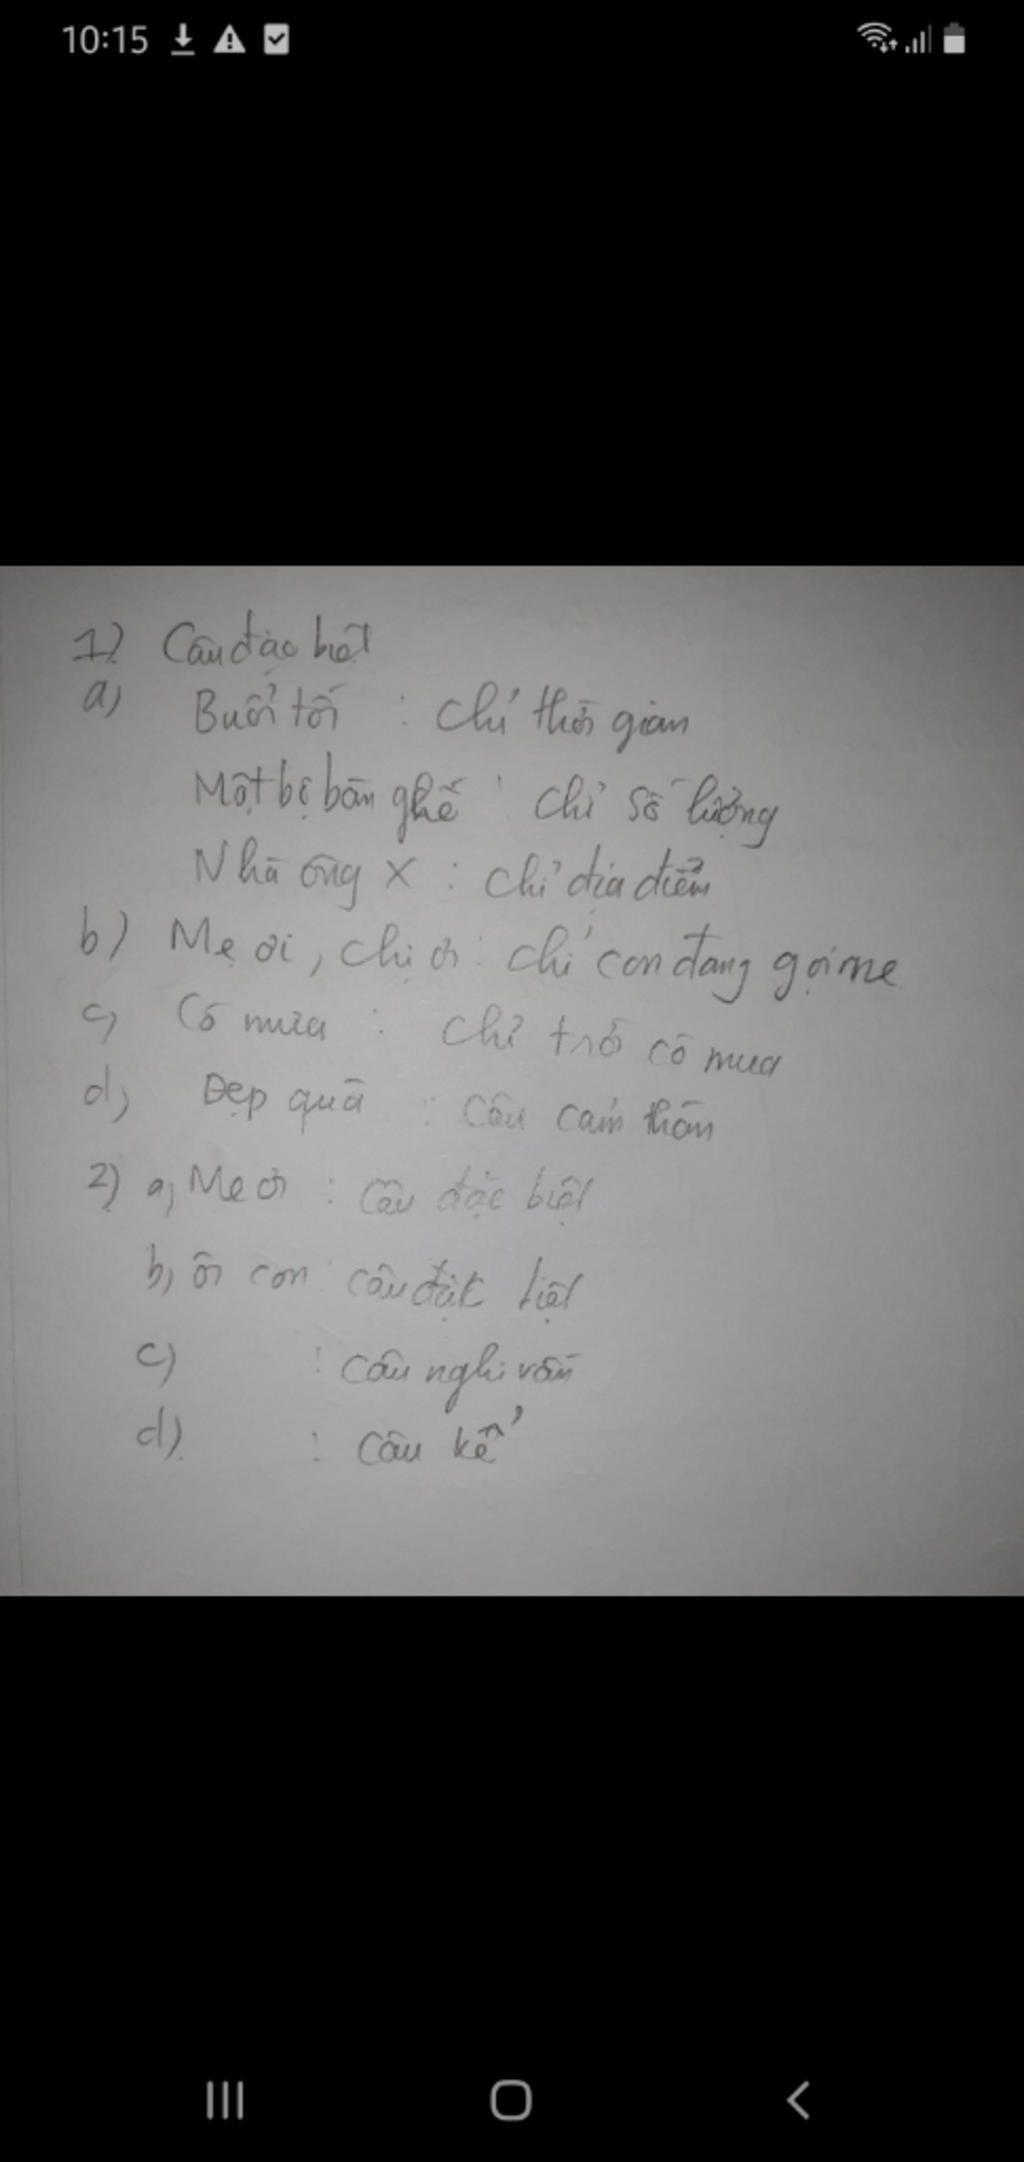 10:15
1) Câu đặc biệt
a) Buổi tối : chỉ thời gian
Một bộ bàn ghế : chỉ số lượng
Nhà ông X : chỉ địa điểm
b) Mẹ ơi, chị ơi : chỉ con đang gọi mẹ
c) Có mưa : chỉ trời có mưa
d) Đẹp quá : câu cảm thán
2) a) Mẹ ơi : câu đặc biệt
b) ôi con câu đặt biệt
c) : câu nghi vấn
d) : câu kể